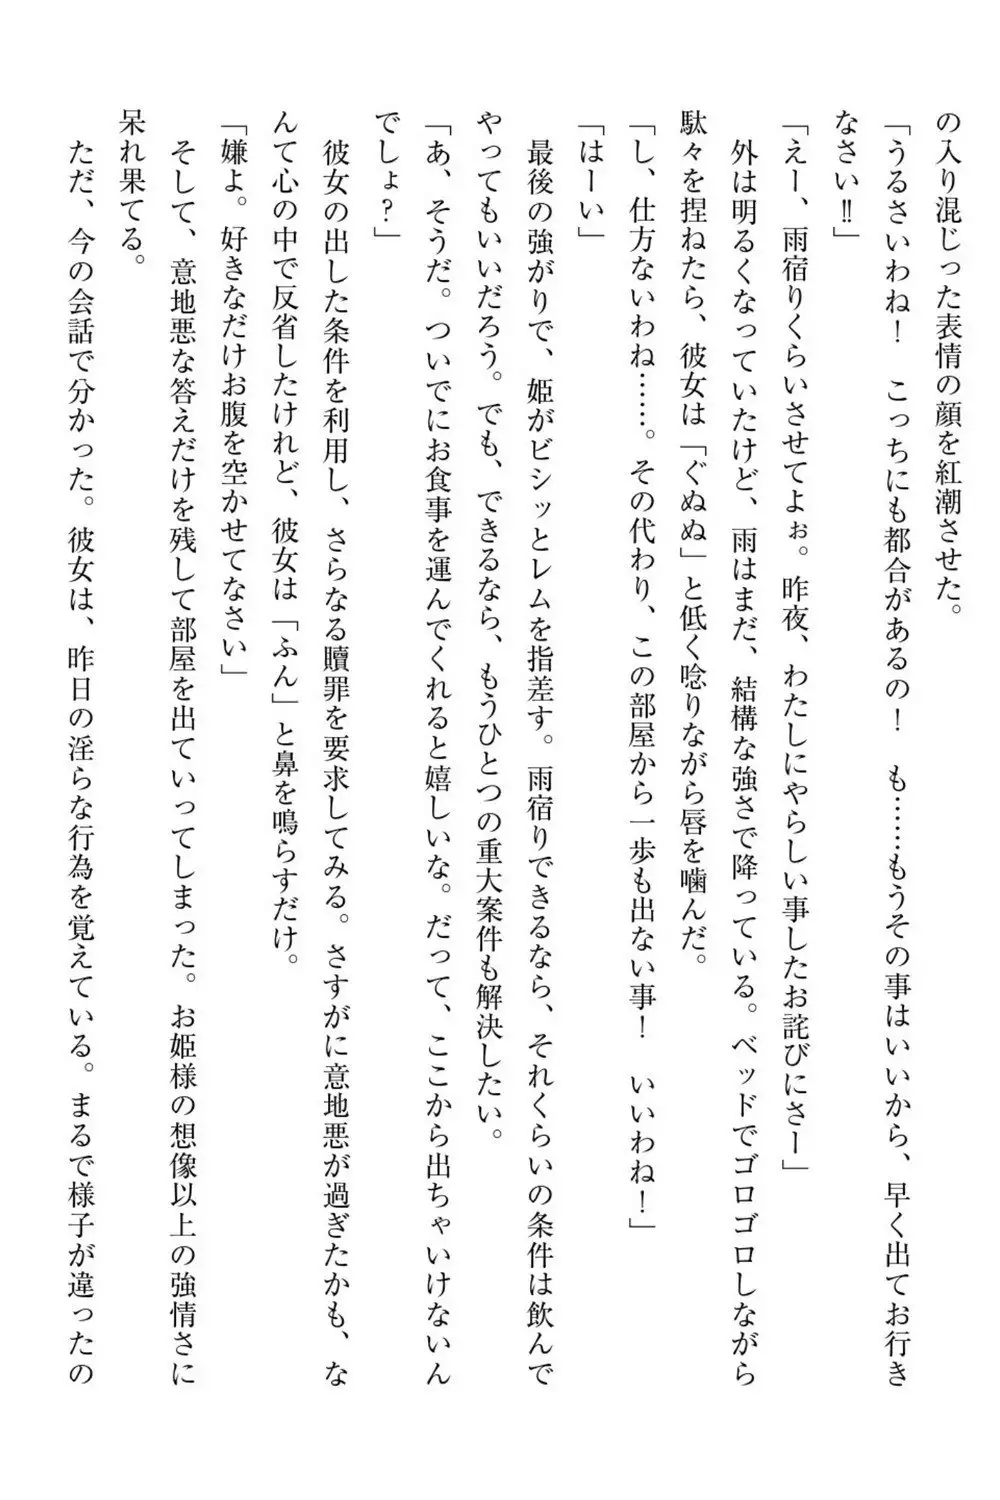 の入り混じった表情の顔を紅潮させた。
「うるさいわね！　こっちにも都合があるの！　も……もうその事はいいから、早く出てお行き
なさい‼」
「えー、雨宿りくらいさせてよぉ。昨夜、わたしにやらしい事したお詫びにさー」
　外は明るくなっていたけど、雨はまだ、結構な強さで降っている。ベッドでゴロゴロしながら
駄々を捏ねたら、彼女は「ぐぬぬ」と低く唸りながら唇を噛んだ。
「し、仕方ないわね……。その代わり、この部屋から一歩も出ない事！　いいわね！」
「はーい」
　最後の強がりで、姫がビシッとレムを指差す。雨宿りできるなら、それくらいの条件は飲んで
やってもいいだろう。でも、できるなら、もうひとつの重大案件も解決したい。
「あ、そうだ。ついでにお食事を運んでくれると嬉しいな。だって、ここから出ちゃいけないん
でしょ？」
　彼女の出した条件を利用し、さらなる贖罪を要求してみる。さすがに意地悪が過ぎたかも、な
んて心の中で反省したけれど、彼女は「ふん」と鼻を鳴らすだけ。
「嫌よ。好きなだけお腹を空かせてなさい」
　そして、意地悪な答えだけを残して部屋を出ていってしまった。お姫様の想像以上の強情さに
呆れ果てる。
　ただ、今の会話で分かった。彼女は、昨日の淫らな行為を覚えている。まるで様子が違ったの